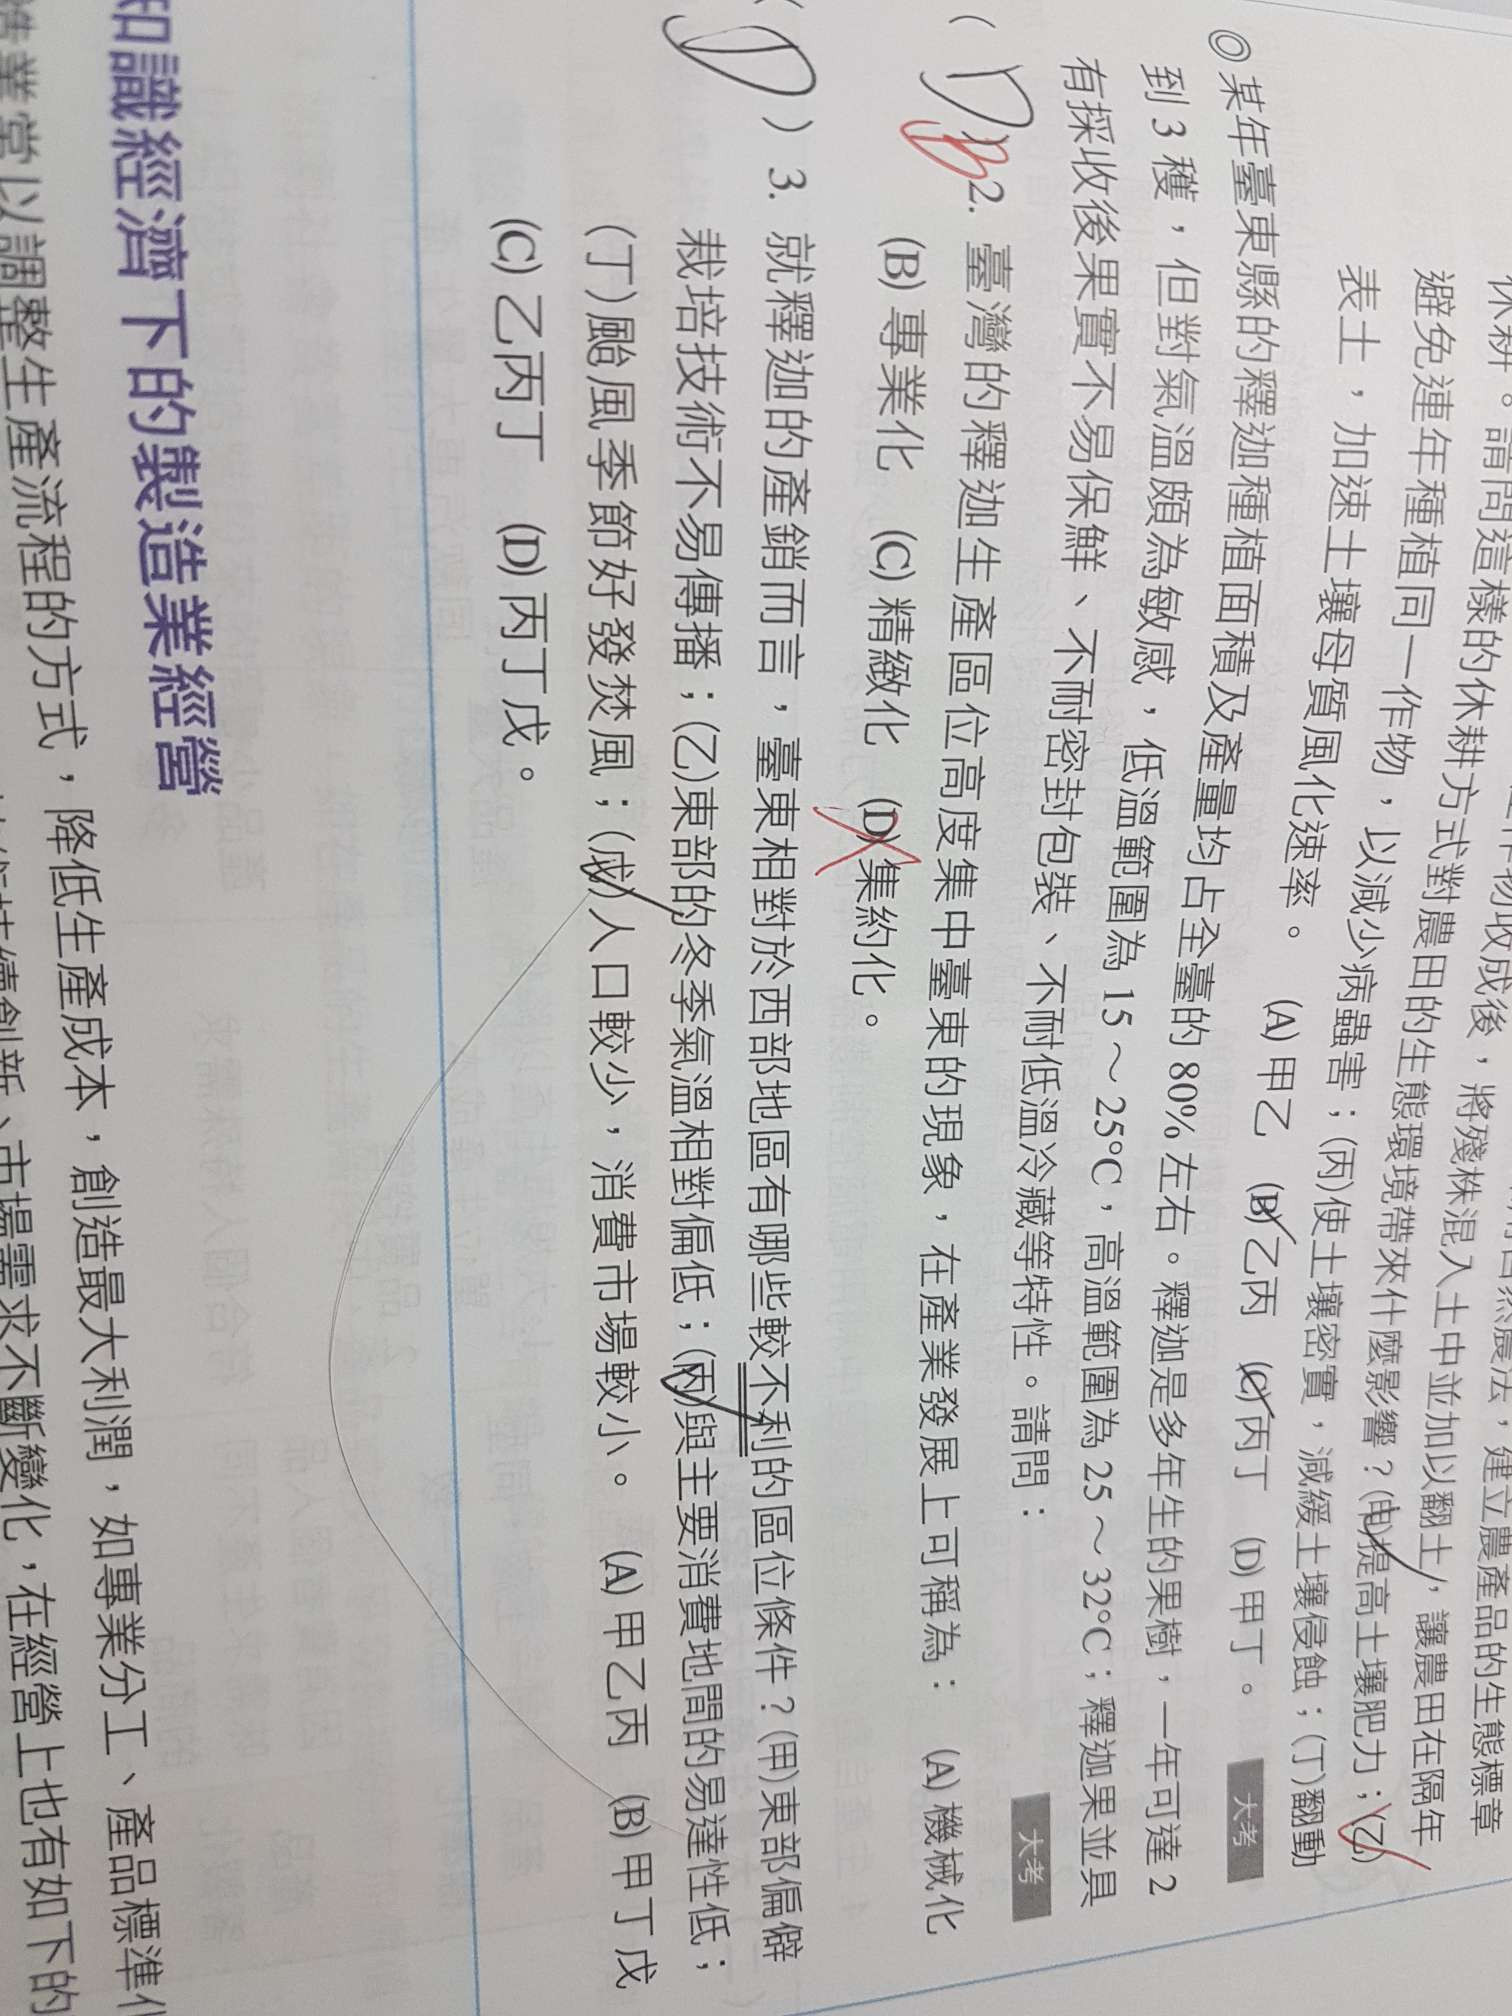 休耕。請問這樣的休耕方式對農田的生態環境帶來什麼影響？(甲)提高土壤肥力；(乙)
避免連年種植同一作物，以減少病蟲害；(丙)使土壤密實，減緩土壤侵蝕；(丁)翻動
表土，加速土壤母質風化速率。 (A) 甲乙 (B) 乙丙 (C) 丙丁 (D) 甲丁。 大考
◎某年臺東縣的釋迦種植面積及產量均占全臺的 80% 左右。釋迦是多年生的果樹，一年可達 2
到 3 穫，但對氣溫頗為敏感，低溫範圍為 15～25°C，高溫範圍為 25～32°C；釋迦果並具
有採收後果實不易保鮮、不耐密封包裝、不耐低溫冷藏等特性。請問： 大考
( D ) B 2. 臺灣的釋迦生產區位高度集中臺東的現象，在產業發展上可稱為： (A) 機械化
(B) 專業化 (C) 精緻化 (D) 集約化。
( D ) 3. 就釋迦的產銷而言，臺東相對於西部地區有哪些較不利的區位條件？(甲)東部偏僻
栽培技術不易傳播；(乙)東部的冬季氣溫相對偏低；(丙)與主要消費地間的易達性低；
(丁)颱風季節好發焚風；(戊)人口較少，消費市場較小。 (A) 甲乙丙 (B) 甲丁戊
(C) 乙丙丁 (D) 丙丁戊。
和識經濟下的製造業經營
造業常以調整生產流程的方式，降低生產成本，創造最大利潤，如專業分工、產品標準化
市場需求不斷變化，在經營上也有如下的